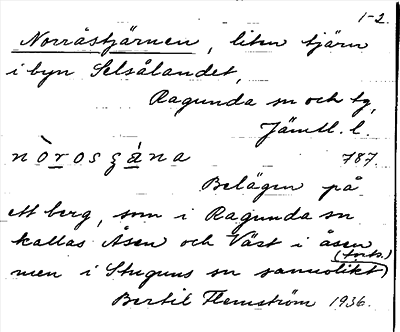 1-2.
Norråstjärnen, liten tjärn
i byn Selsålandet,
Ragunda sn och tg,
Jämtl. l.
nòrosʒána 787.
Belägen på
ett berg, som i Ragunda sn
kallas Åsen och Väst i åsen
(forts.)
men i Stuguns sn sannolikt
Bertil Flemström 1936.